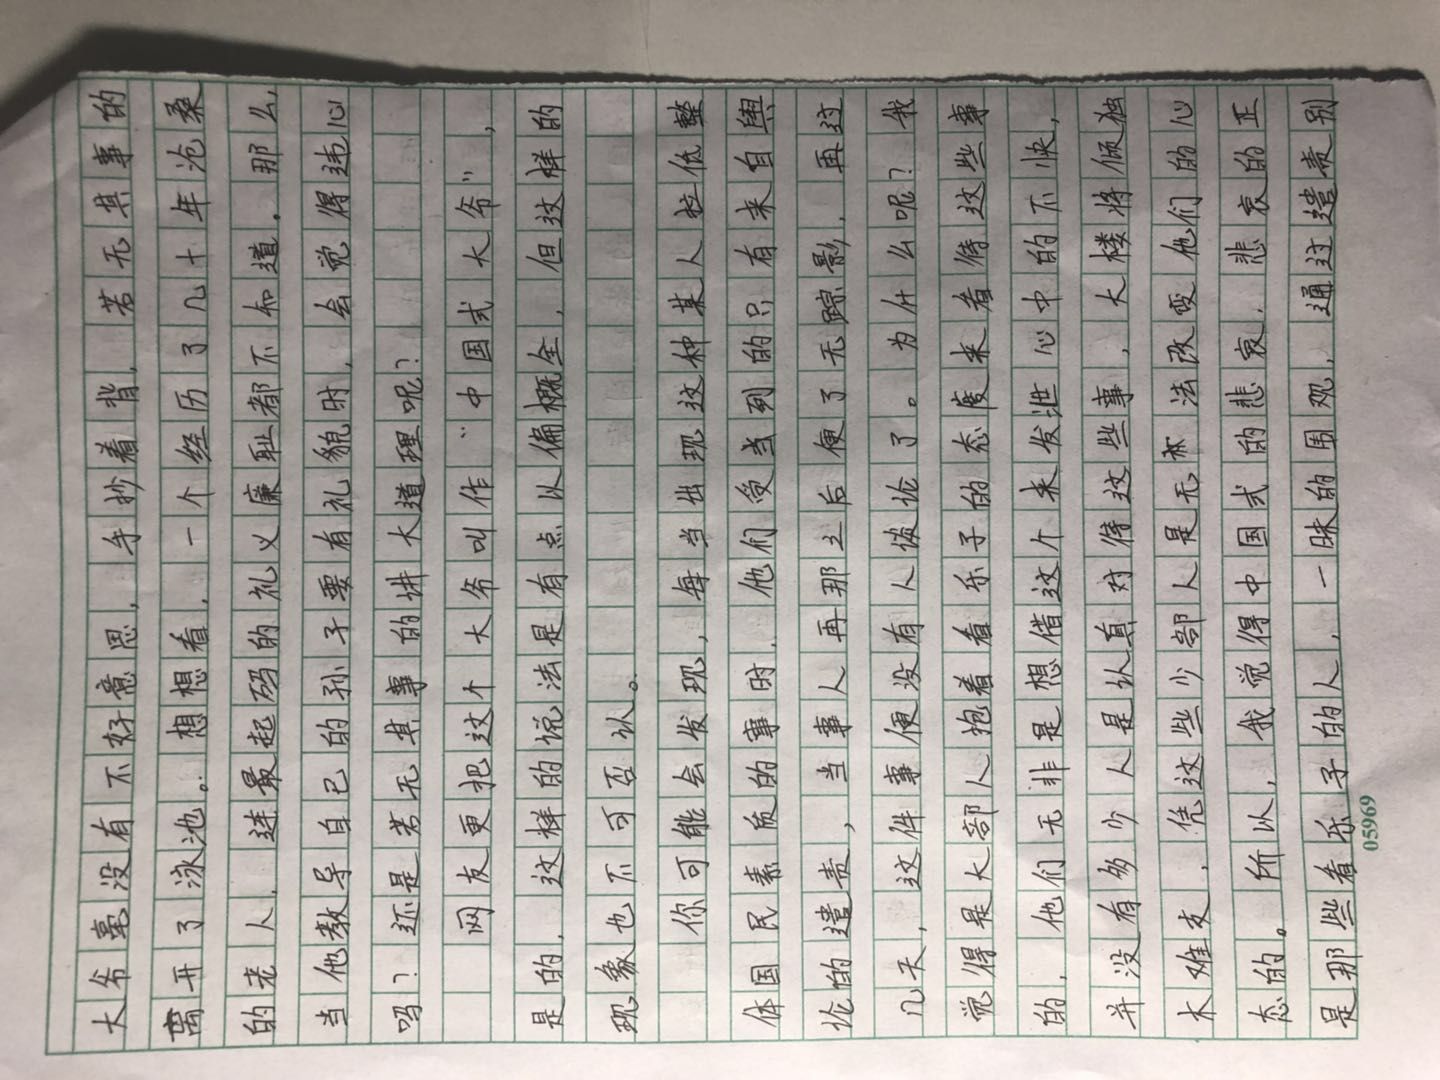 大爷毫没有不好意思，手抄着背，若无其事的
离开了泳池。想想看，一个经历了几十年沧桑
的老人，连最起码的礼义廉耻都不知道。那么，
当他教导自己的孙子要有礼貌时，会觉得违心
吗？还是若无其事的讲大道理呢？
网友更把这个大爷叫作“中国式大爷”，
是的，这样的说法是有点以偏概全，但这样的
现象也不可否认。
你可能会发现，每当出现这种某人拉低整
体国民素质的事时，他们受当列的只有来自舆
论的谴责，当事人再那之后便了无踪影，再过
几天，这件事便没有人谈论了。为什么呢？我
觉得是大部人抱着看乐子的态度来看待这些事
的，他们无非是想借这个来发泄心中的不快，
并没有多少人是认真对待这些事，大楼将倾独
木难支，凭这些少部人是无法改变他们的心
态的。所以，我觉得中国式的悲哀，悲哀的正
是那些看乐子的人，一昧的围观，通过谴责别
05969